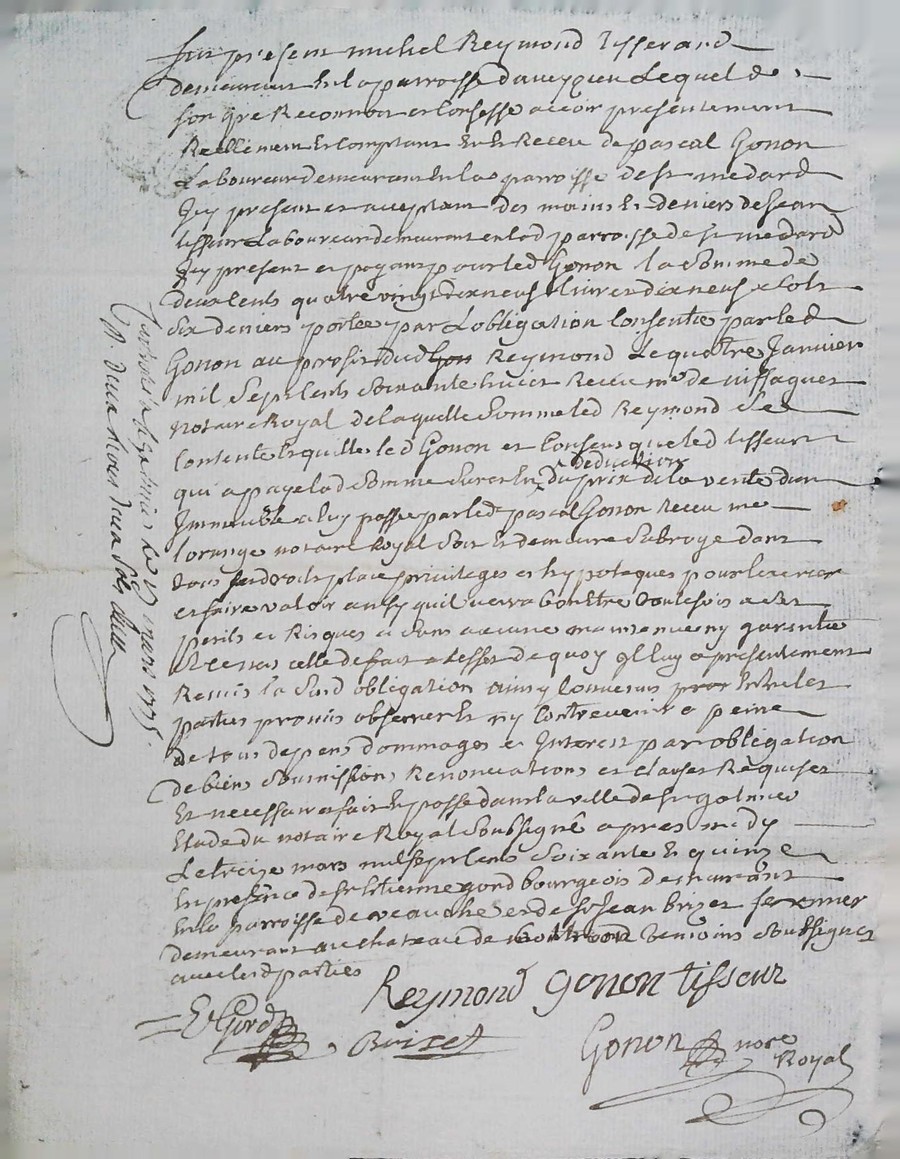 fut present michel Reymond tisserand
demeurant En la parroisse daveyzieu Lequel de
son gre Reconnoit et Confesse avoir presentement
Reellement Et Comptant Eu Et Receu de pascal Gonon
Laboureur demeurant En la parroisse de st medard
Icy present et acceptant des mains Et deniers de Jean
tisseur Laboureur demeurant en lad parroisse de st medard
Icy present et payant pour led Gonon la Somme de
deux Cents quatre vingt dix neuf livres dix neuf Sols
Six deniers portée par Lobligation Consentie par led
Gonon au profit dud Reymond Le quatre Janvier
mil Sept Cents Soixante Receu me de
notaire Royal de laquelle Somme led Reymond Se
Contente Et quitte led Gonon et Consent que led tisseur
qui a payé lad Somme deduction du prix de la vente dun
Immeuble a luy passé par led pascal Gonon Receu me
lorange notaire Royal Soit Et demeure Subrogé dans
tous droits place privileges et hypoteques pour Exercer
et faire valoir ainsy quil verra bon Etre toutefois a Ses
perils et Risques et Sans aucune maintenue ny garentie
celle de fait a leffet de quoy Il luy a presentement
Remis la Susd obligation ainsy Convenus Entre les
parties promis observer Et ny Contrevenir a peine
de tous depens dommages et Interest par obligation
de biens Soumissions Renonciations et Clauses Requises
Et necessaires fait Et passé dans la ville de st galmier
Etude du notaire Royal Soussigné apres midy
Le treize mars mil Sept Cents Soixante Et quinze
En presence de sr Etienne gord bourgeois demeurant
En la parroisse de veauche et de sr Jean brizet fermier
demeurant au chateau de temoins Soussignés
avec lesd parties
Reymond Gonon tisseur
E Gord
Brizet
Gonon nore
Royal
Controlé a St galmier Le mars 1775.
R. deux livres deux Sols